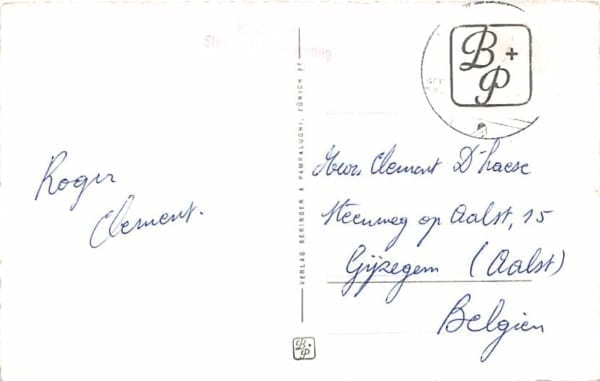 Roger
Clement.
VERLAG BERINGER & PAMPALUCHI, ZÜRICH
B + P
Clement D'haese
Steenweg op Aalst, 15
Gijzegem (Aalst)
Belgien
B + P